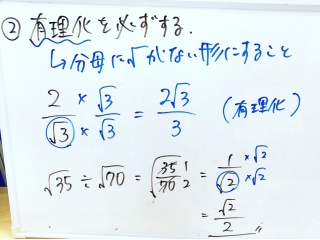 ② 有理化を必ずする.
↳ 分母に√がない形にすること
2/√3 × √3/√3 = 2√3/3 (有理化)
√35 ÷ √70 = √(35/70) 1/2 = 1/√2 ×√2/×√2
= √2/2